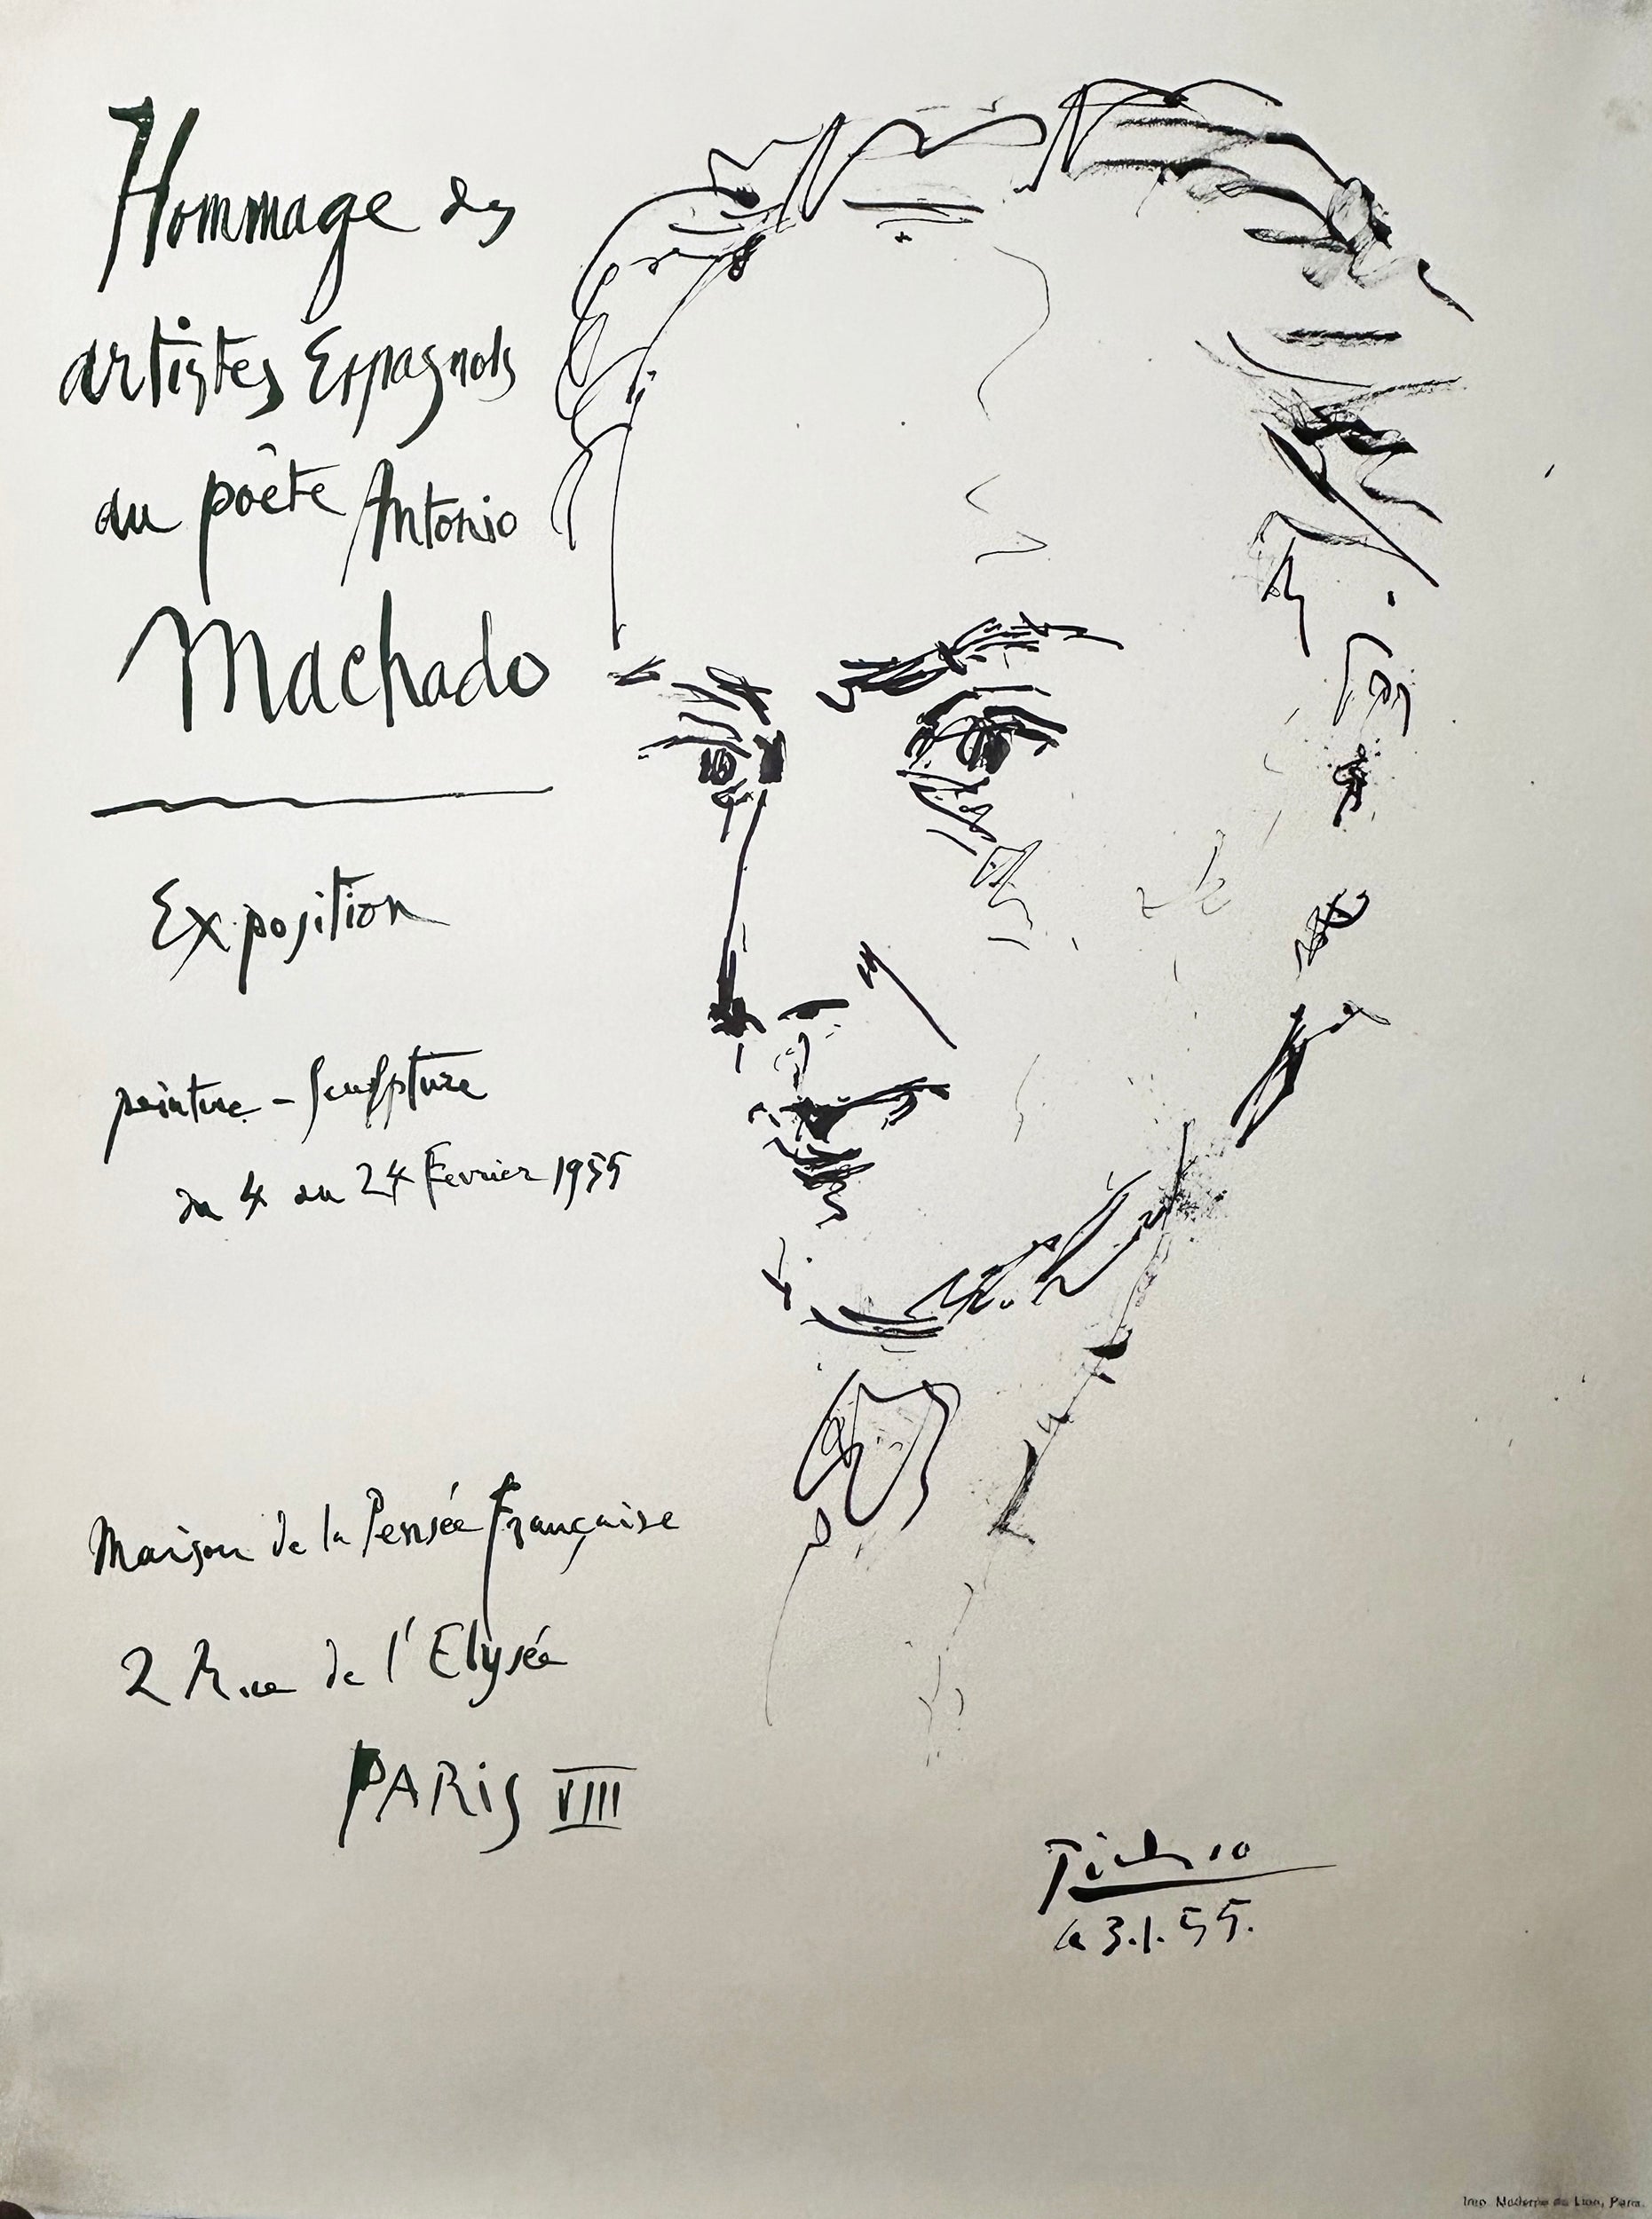 Hommage des
artistes Espagnols
au poète Antonio
Machado
Exposition
peinture - Sculpture
du 4 au 24 Fevrier 1955
Maison de la Pensée Française
2 Rue de l'Elysée
PARIS VIII
Picasso
le 3.1.55.
Imp. Moderne du Lion, Paris.